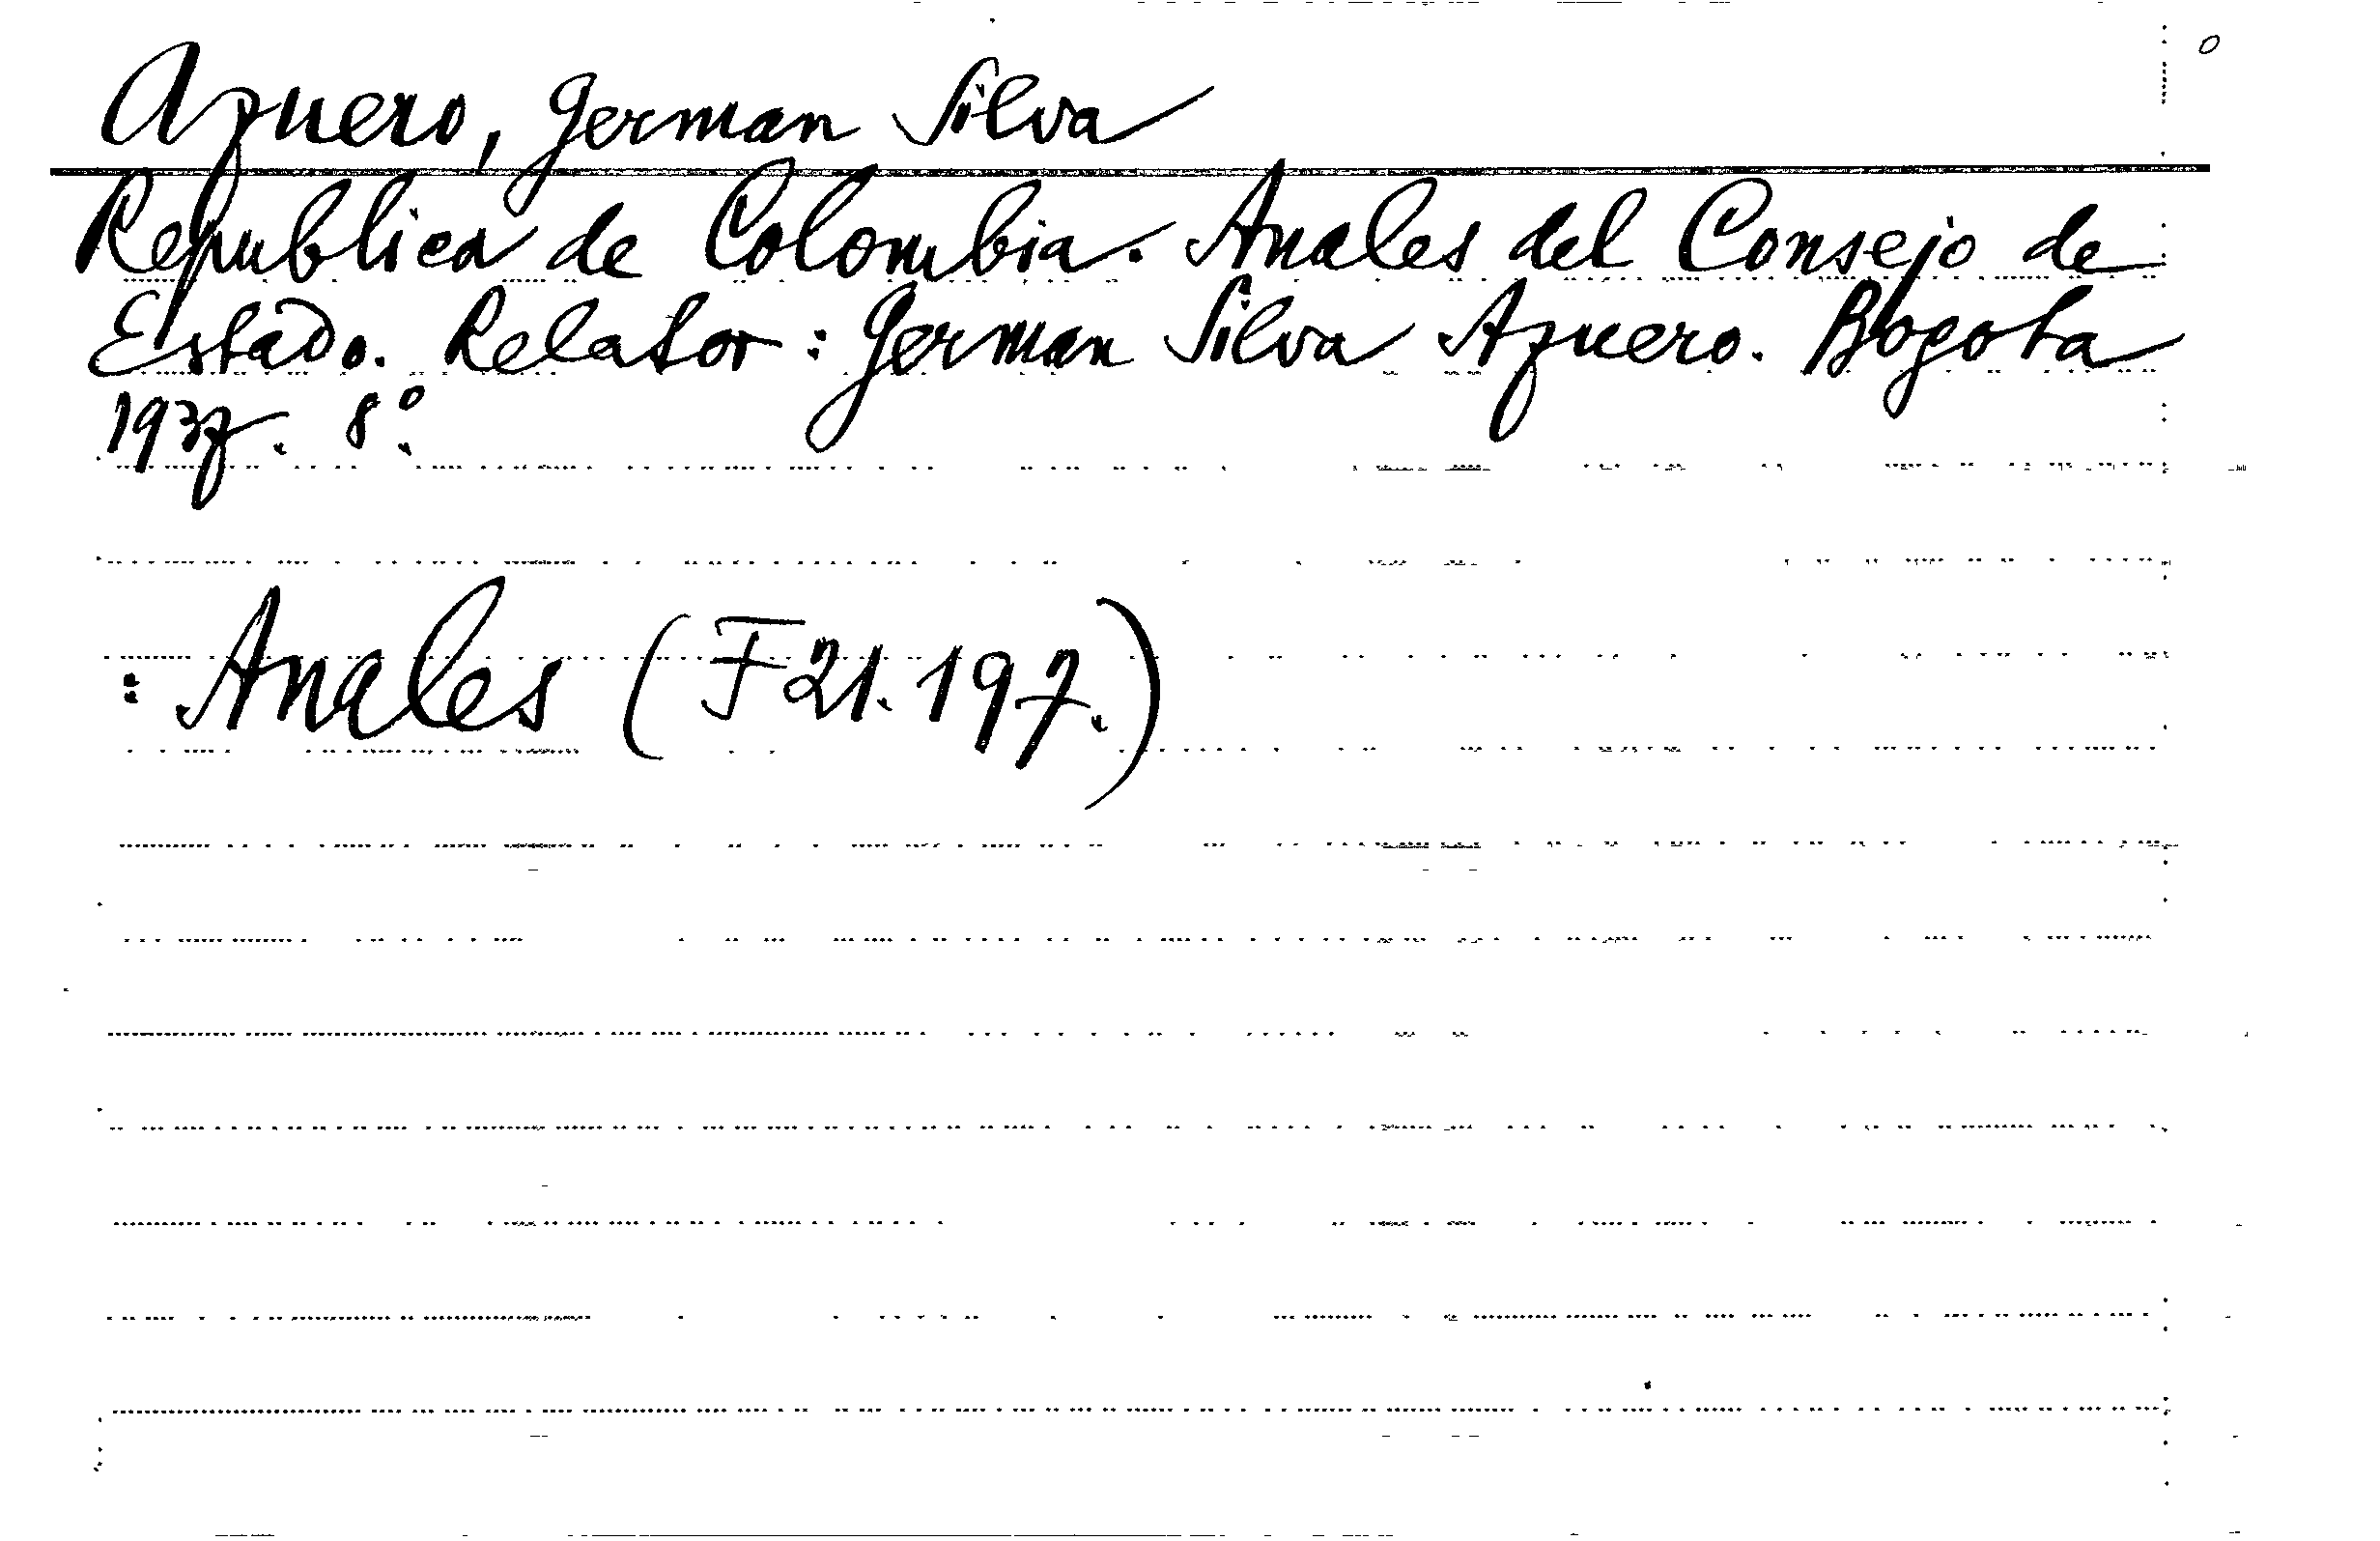 Azuero, German Silva
Republica de Colombia. Anales del Consejo de
Estado. Relator: German Silva Azuero. Bogota
1937. 8º.
: Anales (F21.197.)